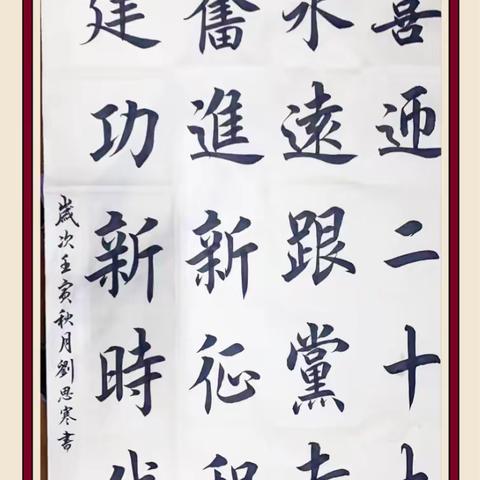 喜迎二十大
永遠跟黨走
奮進新征程
建功新時代
歲次壬寅秋月劉思寒書